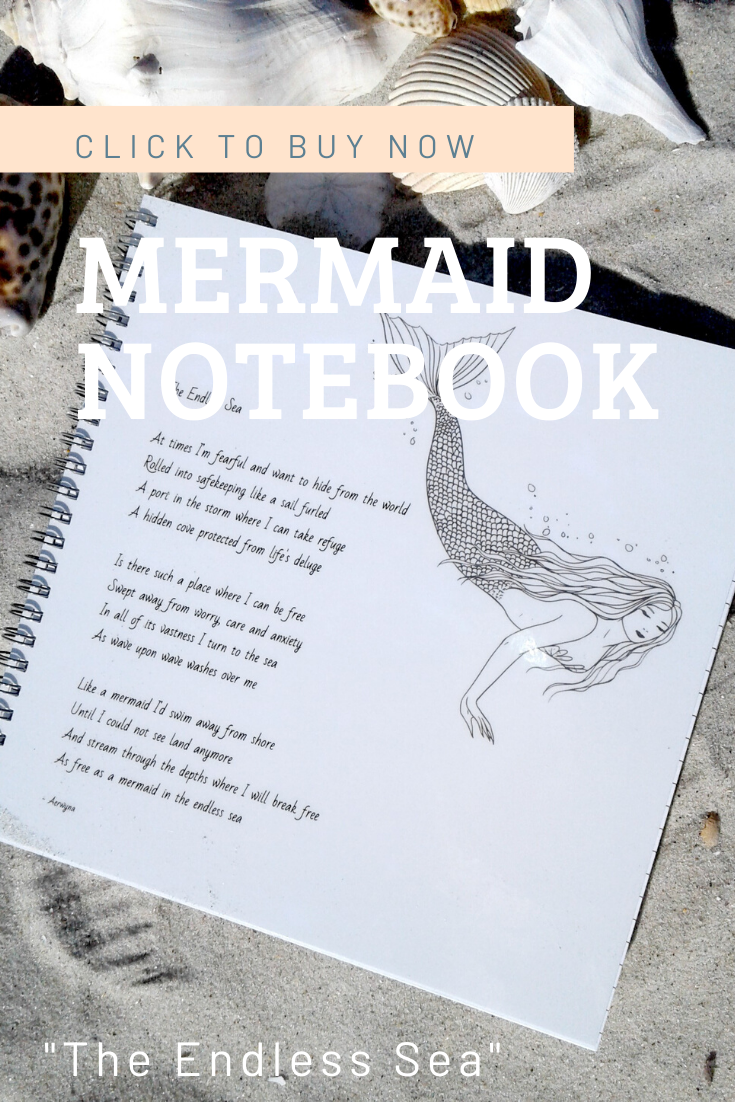 CLICK TO BUY NOW
MERMAID
NOTEBOOK
The Endless Sea
At times I'm fearful and want to hide from the world
Rolled into safekeeping like a sail furled
A port in the storm where I can take refuge
A hidden cove protected from life's deluge
Is there such a place where I can be free
Swept away from worry, care and anxiety
In all of its vastness I turn to the sea
As wave upon wave washes over me
Like a mermaid I'd swim away from shore
Until I could not see land anymore
And stream through the depths where I will break free
As free as a mermaid in the endless sea
- Aerwyna
"The Endless Sea"